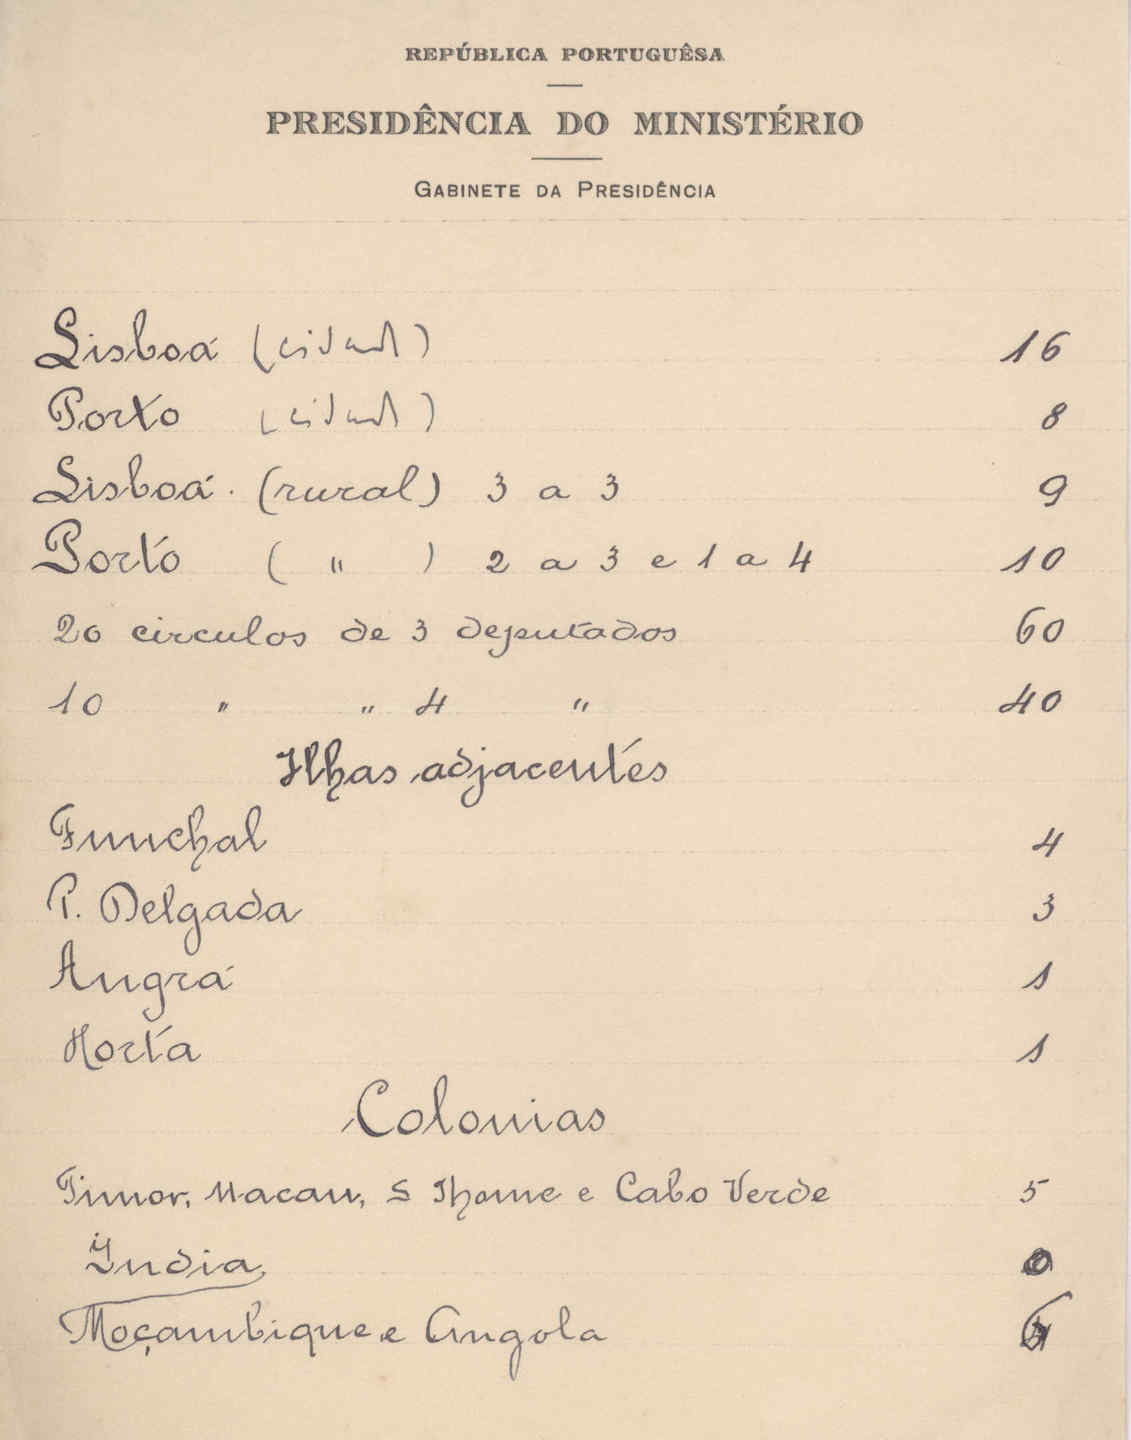 REPÚBLICA PORTUGUÊSA
PRESIDÊNCIA DO MINISTÉRIO
GABINETE DA PRESIDÊNCIA
Lisboa (cidade) 16
Porto (cidade) 8
Lisboa. (rural) 3 a 3 9
Porto ( " ) 2 a 3 e 1 a 4 10
20 circulos de 3 deputados 60
10 " " 4 " 40
Ilhas adjacentes
Funchal 4
P. Delgada 3
Angra 1
Horta 1
Colonias
Timor, Macau, S Thome e Cabo Verde 5
India,
Moçambique e Angola